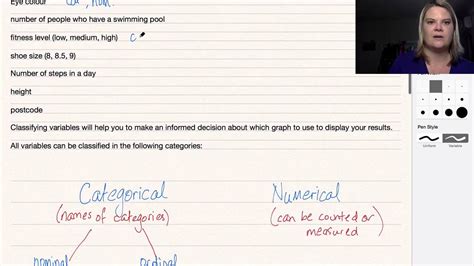 Eye colour Cat, nom.
number of people who have a swimming pool
fitness level (low, medium, high) c
shoe size (8, 8.5, 9)
Number of steps in a day
height
postcode
Classifying variables will help you to make an informed decision about which graph to use to display your results.
All variables can be classified in the following categories:
Categorical
(names of categories)
nominal
ordinal
Numerical
(can be counted or
measured)
Pen Style
Uniform
Variable